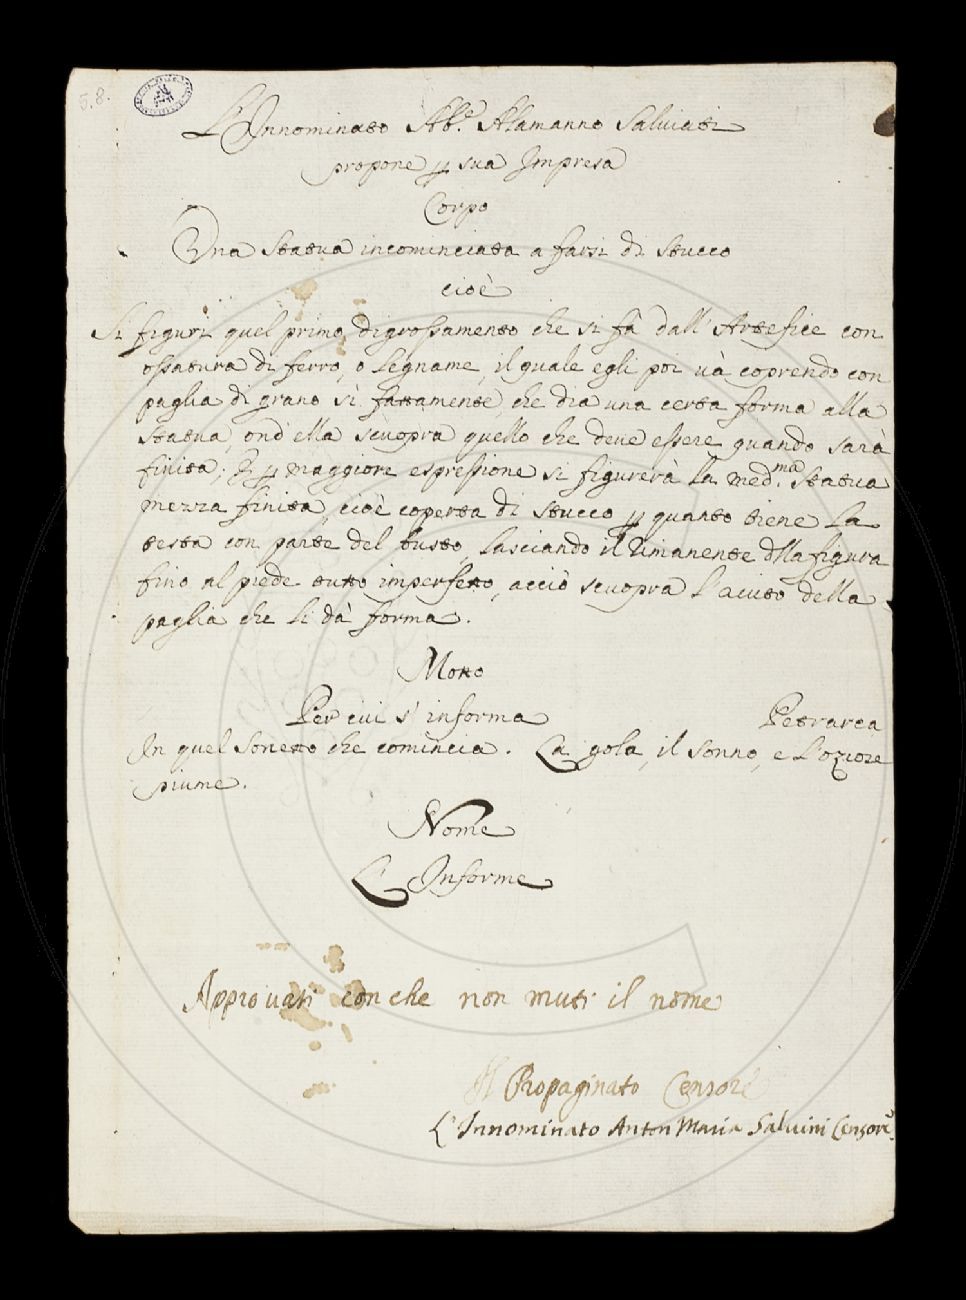 5.8.
L'Innominato Ab.e Alamanno Salviati
propone p sua Impresa
Corpo
Una statua incominciata a farsi di stucco
cioè
Si figuri quel primo digrossamento che si fà dall'Artefice con
ossatura di ferro, o legname, il quale egli poi và coprendo con
paglia di grano sì fattamente, che dia una certa forma alla
statua, ond'ella scuopra quello che deve essere quando sarà
finita; E p maggiore espressione si figurerà la med.ma statua
mezza finita, cioè coperta di stucco p quanto tiene la
testa con parte del busto, lasciando il rimanente dlla figura
fino al piede tutto imperfetto, acciò scuopra l'aiuto della
paglia che li dà forma.
Motto
Per cui s'informa Petrarca
In quel Sonetto che comincia. La gola, il sonno, e l'oziose
piume.
Nome
L'Informe
Approvati con che non muti il nome
Il Propaginato Censore
L'Innominato Anton Maria Salvini Censore